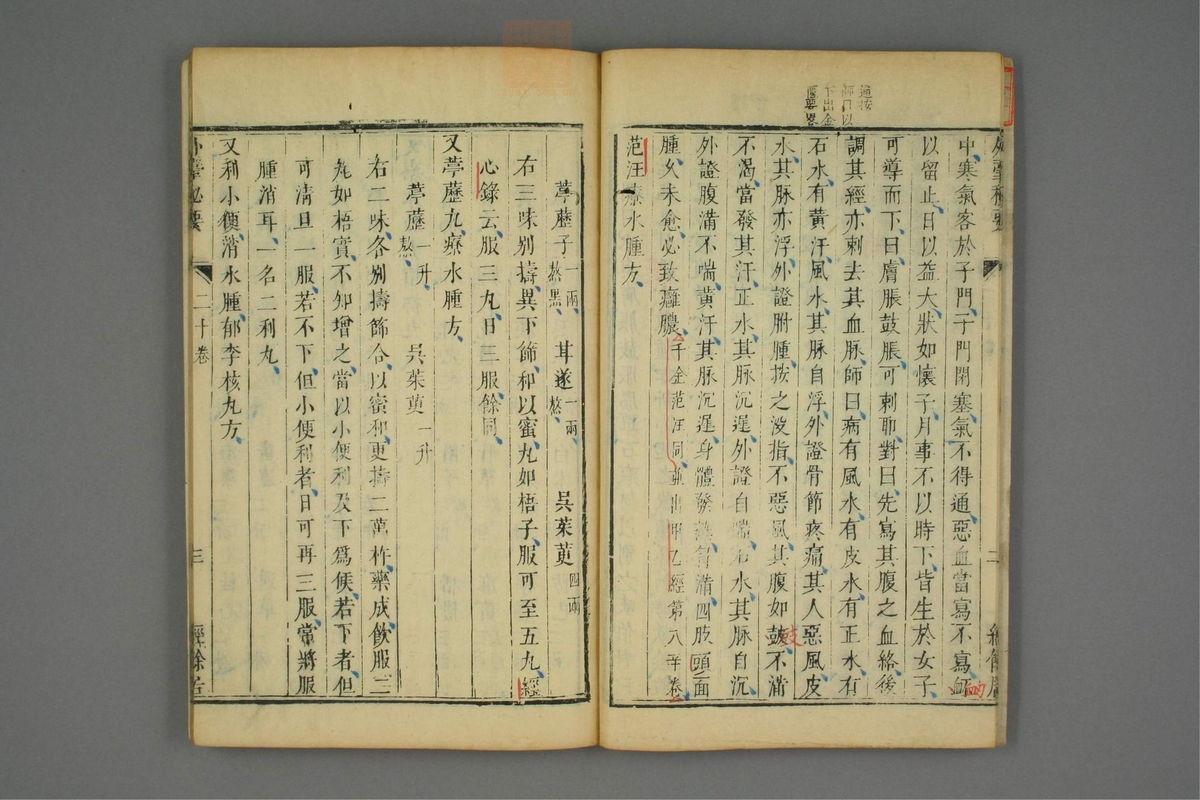 中寒氣客於子門子門閉塞氣不得通惡血當寫不寫衃
以留止日以益大狀如懷子月事不以時下皆生於女子
可導而下曰膚脹鼓脹可刺耶對曰先寫其腹之血絡後
調其經亦刺去其血脉師曰病有風水有皮水有正水有
石水有黃汗風水其脉自浮外證骨節疼痛其人惡風皮
水其脉亦浮外證胕腫按之没指不惡風其腹如鼓不滿
不渴當發其汗正水其脉沉遲外證自喘石水其脉自沉
外證腹滿不喘黃汗其脉沉遲身體發熱胷滿四肢頭面
腫久未愈必致癰膿千金范汪同並出甲乙經第八卷
范汪療水腫方
葶藶子一兩熬黑 甘遂一兩熬 吳茱萸四兩
右三味别擣異下篩和以蜜丸如梧子服可至五丸經
心錄云服三丸日三服餘同
又葶藶丸療水腫方
葶藶一升熬 吳茱萸一升
右二味各别擣篩合以蜜和更擣二萬杵藥成飲服二
丸如梧實不知增之當以小便利及下爲候若下者但
可清旦一服若不下但小便利者日可再三服常將服
腫消耳一名二利丸
又利小便消水腫郁李核丸方
外臺秘要 二十卷 三 經餘居